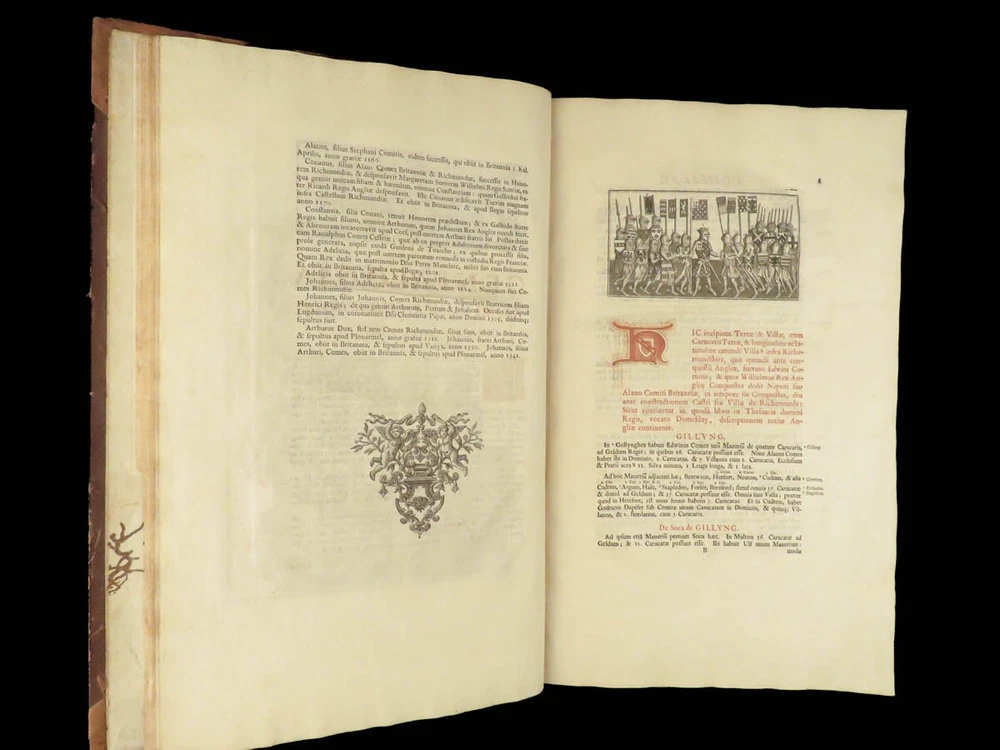 Alanus, filius Stephani Comitis, eidem successit, qui obiit in Britannia 3 Kal.
Aprilis, anno gratiæ 1166.
Conanus, filius Alani Comes Britanniæ & Richmundiæ, successit in Hono-
rem Richmundiæ, & desponsavit Margaretam Sororem Willielmi Regis Scotiæ, ex
qua genuit unicam filiam & hæredem, nomine Constantiam: quam Galfridus fra-
ter Ricardi Regis Angliæ desponsavit. Iste Conanus ædificavit Turrim magnam
infra Castellum Richmundiæ. Et obiit in Britannia, & apud Begar sepelitur
anno 1170.
Constantia, filia Conani, tenuit Honorem prædictum; & ex Galfrido fratre
Regis habuit filium, nomine Arthurum, quem Johannes Rex Angliæ occidi fecit,
& Alienoram incarceravit apud Corf, post mortem Arthuri fratris sui. Postea duxit
eam Ranulphus Comes Cestriæ; quæ ab eo propter Adulterium divorciata & sine
prole generata, nupsit cuidi Guidoni de Touarche, ex quibus processit filia,
nomine Adelicia, quæ post mortem parentum remansit in custodia Regis Franciæ.
Quam Rex dedit in matrimonio Dño Petro Mauclerc, misitq; suis cum Britannia.
Et obiit in Britannia, sepulta apud Begar, 1201.
Adelicia obiit in Britannia, & sepulta apud Plenarmel, anno gratiæ 1221.
Johannes, filius Adeliciæ, obiit in Britannia, anno Nunquam fuit Co-
mes Richmundiæ.
Johannes, filius Johannis, Comes Richmundiæ, desponsavit Beatricem filiam
Henrici Regis; de qua genuit Arthurum, Petrum & Johannem. Occisus fuit apud
Lugdunum, in coronatione Dñi Clementis Papæ, anno Domini 1305, ibidemq;
sepultus fuit.
Arthurus Dux, sed non Comes Richmundiæ, filius suus, obiit in Britannia,
& sepultus apud Plouarmel, anno gratiæ 1312. Johannes, frater Arthuri, Co-
mes, obiit in Britannia, & sepultus apud anno Johannes, filius
Arthuri, Comes, obiit in Britannia, & sepultus apud Plouarmel, anno 1341.
1
HIC incipiunt Terræ & Villæ, cum
Carucatis Terræ, & longitudine ac la-
titudine earundē Villaꝝ infra Riche-
mundshire, quæ quondā ante con-
questū Angliæ, fuerunt Edwini Co-
mitis; & quas Willielmus Rex An-
gliæ Conquestor dedit Nepoti suo
Alano Comiti Britanniæ, in tempore sui Conquestus, diu
ante constructionem Castri sive Villæ de Richemunde:
Sicut continetur in quodā libro in Thesauro domini
Regis, vocato Domesday, descriptionem totius An-
gliæ continente.
GILLYNG.
In Gellynghes habuit Edwinus Comes unū Manerium de quatuor Carucatis,
ad Geldum Regis; in quibus 16. Carucatæ possunt esse. Nunc Alanus Comes
habet ibi in Dominio, 2. Carucatas, & 7. Villanos cum 2. Carucatis, Ecclesiam
& Pratū acraꝝ 12. Silva minuta, 1 Leuga longa, & 1 lata.
Ad hoc Manerium adjacent hæ; Berewicæ, Hertfort, Neuton, Cudtun, & alia
Cudton, Argun, Hale, Stapledon, Forset, Bereford; simul omnia 37. Carucatæ
& dimid. ad Geldum; & 27. Carucatæ possunt esse. Omnia sunt Vasta; præter
quod in Hertfort, est unus homo habens 5. Carucatas. Et in Cudton, habet
Godricus Dapifer sub Comite unam Carucatam in Dominio, & quinq; Vil-
lanos, & 2. Bordarios, cum 3. Carucatis.
De Soca de GILLYNG.
Ad ipsum etiā Manerium pertinet Soca hæc. In Multun 16. Carucatæ ad
Geldum; & 12. Carucatæ possunt esse. Et habuit Ulf unum Manerium:
B modo